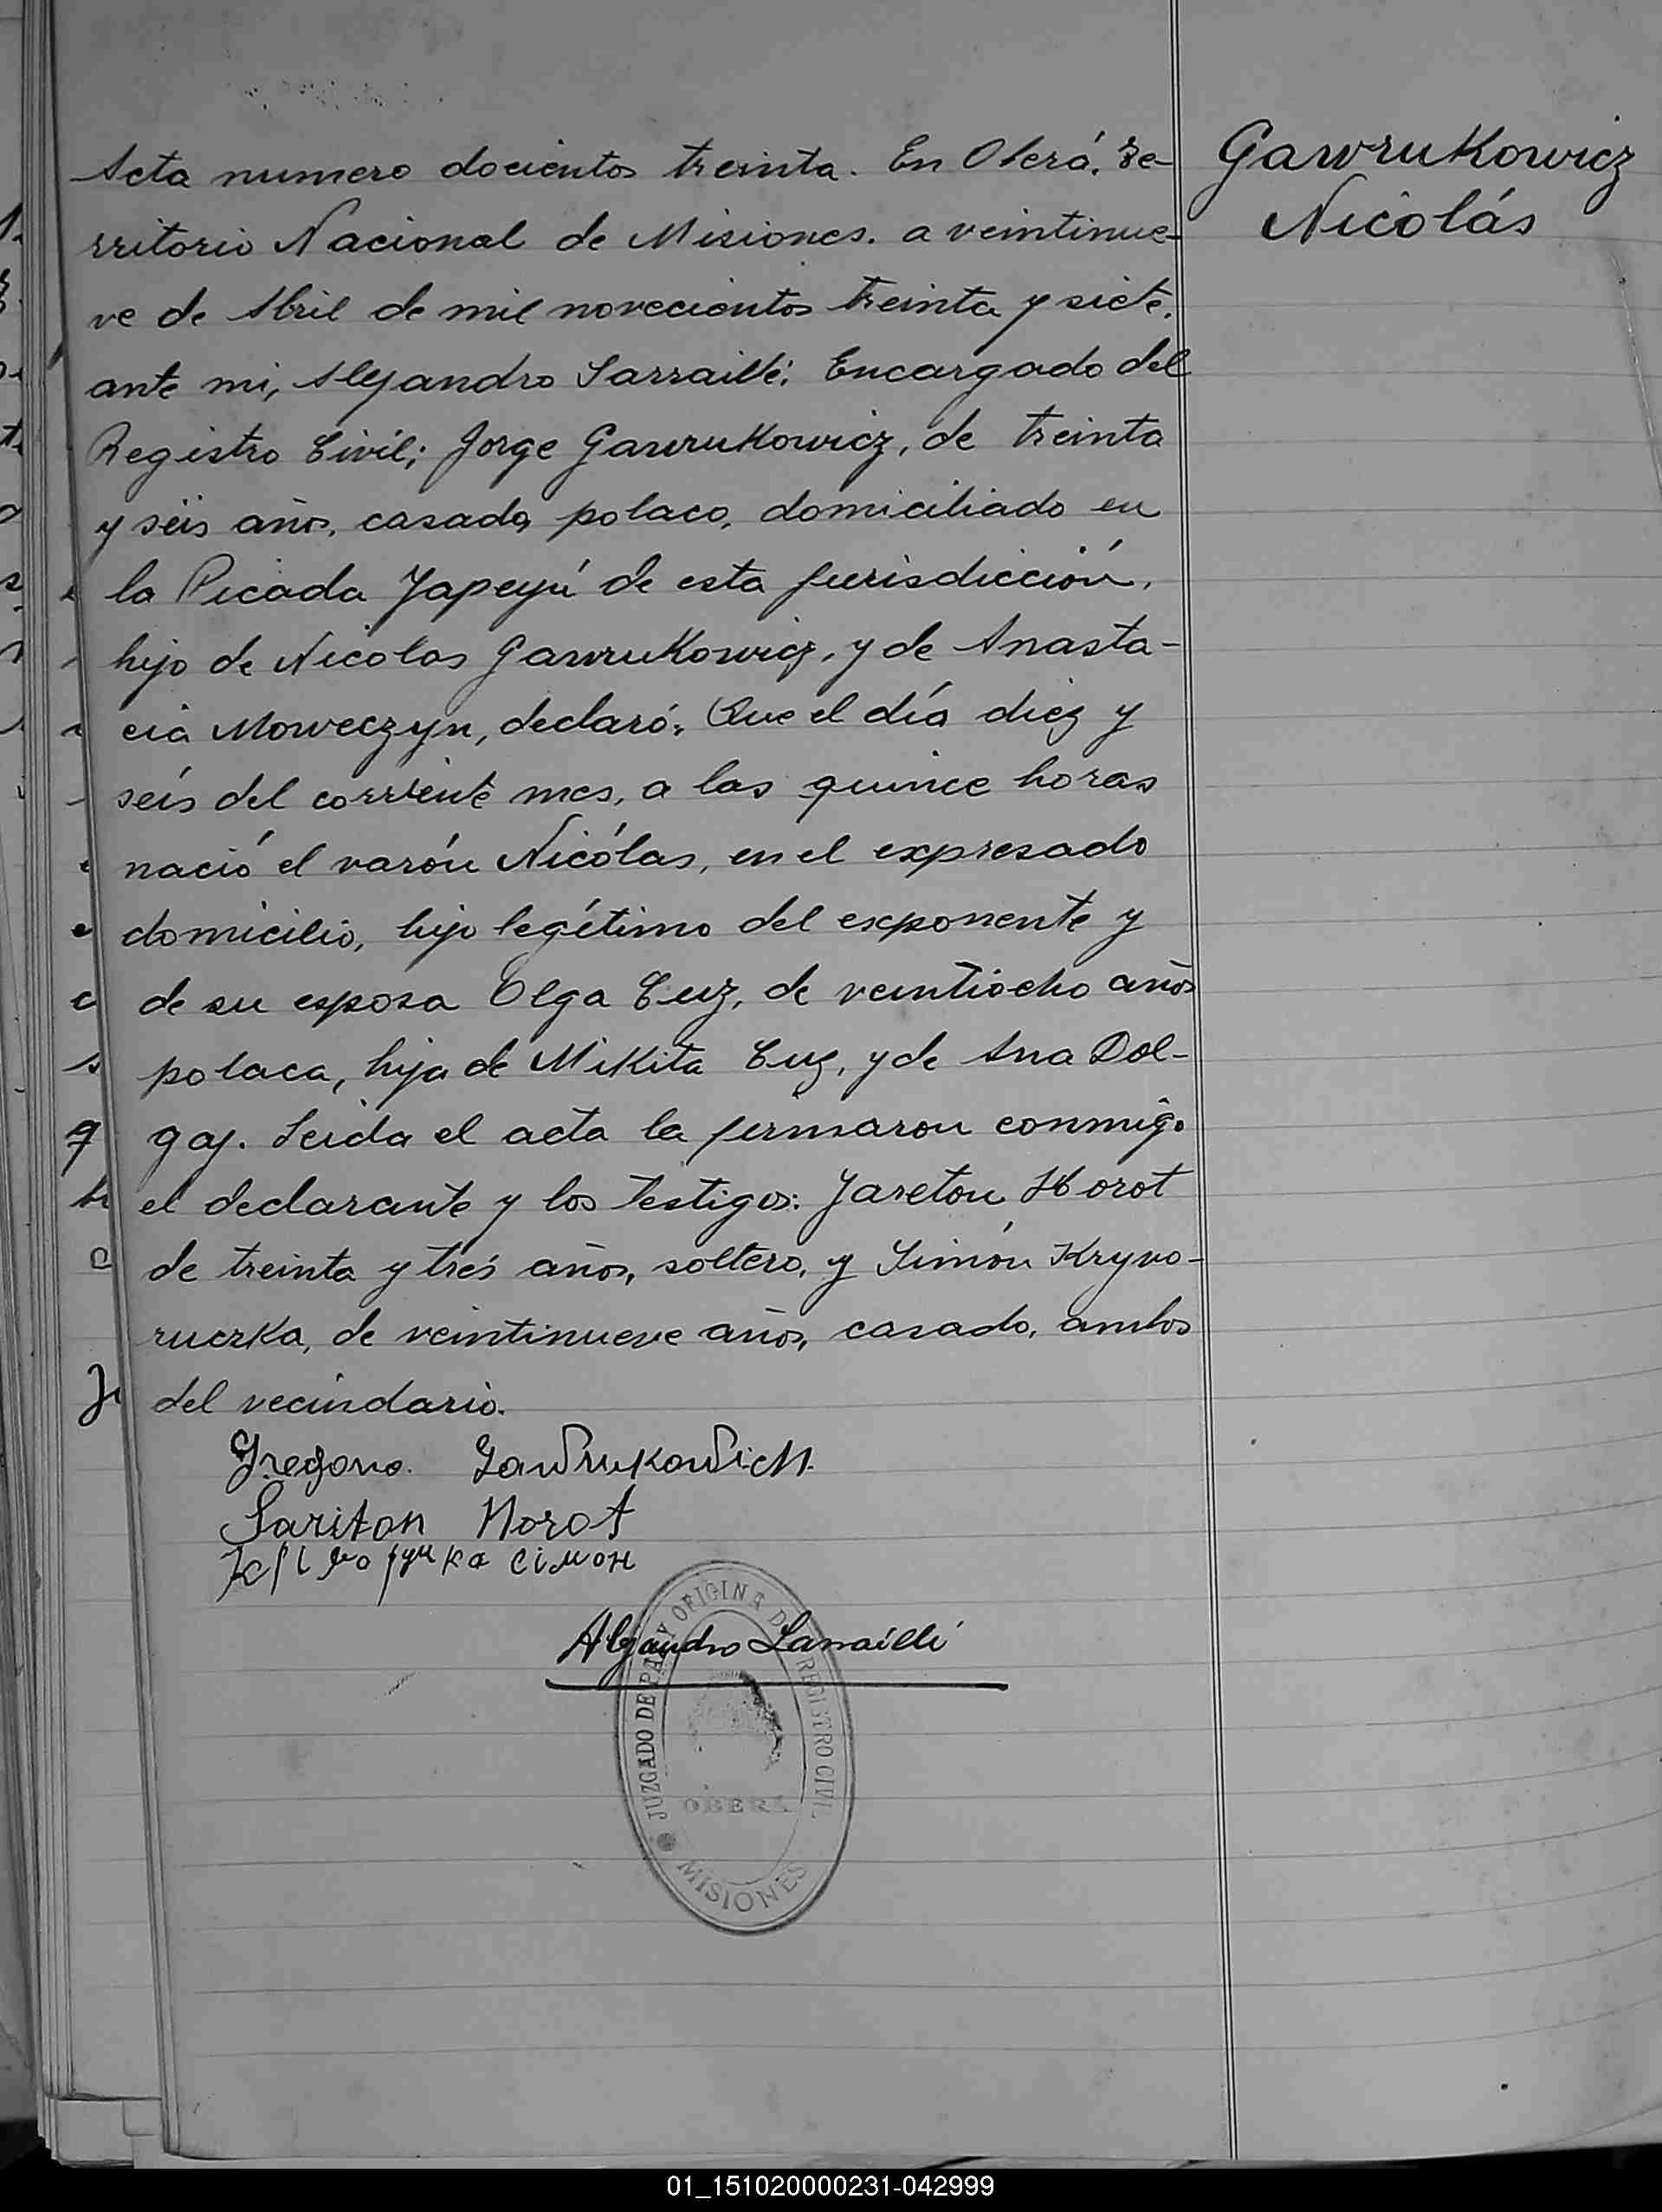 Acta numero docientos treinta. En Oberá, Te-
rritorio Nacional de Misiones. a veintinue-
ve de Abril de mil novecientos treinta y siete,
ante mi, Alejandro Sarraillé; Encargado del
Registro Civil; Jorge Gawrukowicz, de treinta
y séis años, casado, polaco, domiciliado en
la Picada Yapeyú de esta jurisdicción,
hijo de Nicolas Gawrukowicz, y de Anasta-
cia Moweczyn, declaró: Que el día diez y
séis del corriente mes, a las quince horas
nació el varón Nicólas, en el expresado
domicilio, hijo legítimo del exponente y
de su esposa Olga Cuz, de veintiocho años
polaca, hija de Mikita Cuz, y de Ana Dol-
gaj. Leida el acta la firmaron conmigo
el declarante y los testigos: Jareton Horot
de treinta y trés años, soltero, y Simón Kryvo-
ruczka, de veintinueve años, casado, ambos
del vecindario.
Gawrukowicz
Nicolás
Gregorio Gawrukowich
Sariton Horot
Криворучка Сімон
Alejandro Sarraillé
JUZGADO DE PAZ Y OFICINA DE REGISTRO CIVIL
OBERÁ
MISIONES
01_151020000231-042999